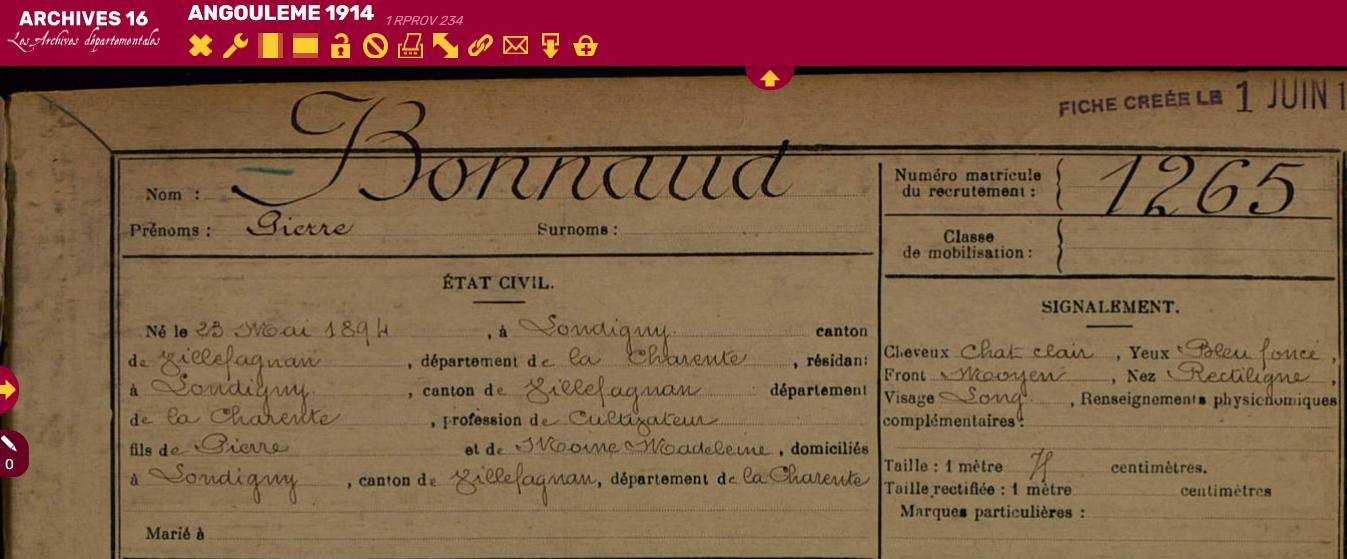 ARCHIVES 16
Les Archives départementales
ANGOULEME 1914 1 RPROV 234
FICHE CRÉÉE LE 1 JUIN 1
Nom : Bonnaud
Prénoms : Pierre Surnoms :
Numéro matricule
du recrutement : 1265
Classe
de mobilisation :
ÉTAT CIVIL.
Né le 23 Mai 1894, à Londigny canton
de Villefagnan, département de la Charente, résidant
à Londigny, canton de Villefagnan département
de la Charente, profession de Cultivateur
fils de Pierre et de Moine Madeleine, domiciliés
à Londigny, canton de Villefagnan, département de la Charente
Marié à
SIGNALEMENT.
Cheveux Chat clair, Yeux Bleu foncé,
Front Moyen, Nez Rectiligne,
Visage Long, Renseignements physionomiques
complémentaires :
Taille : 1 mètre centimètres.
Taille rectifiée : 1 mètre centimètres
Marques particulières :
0